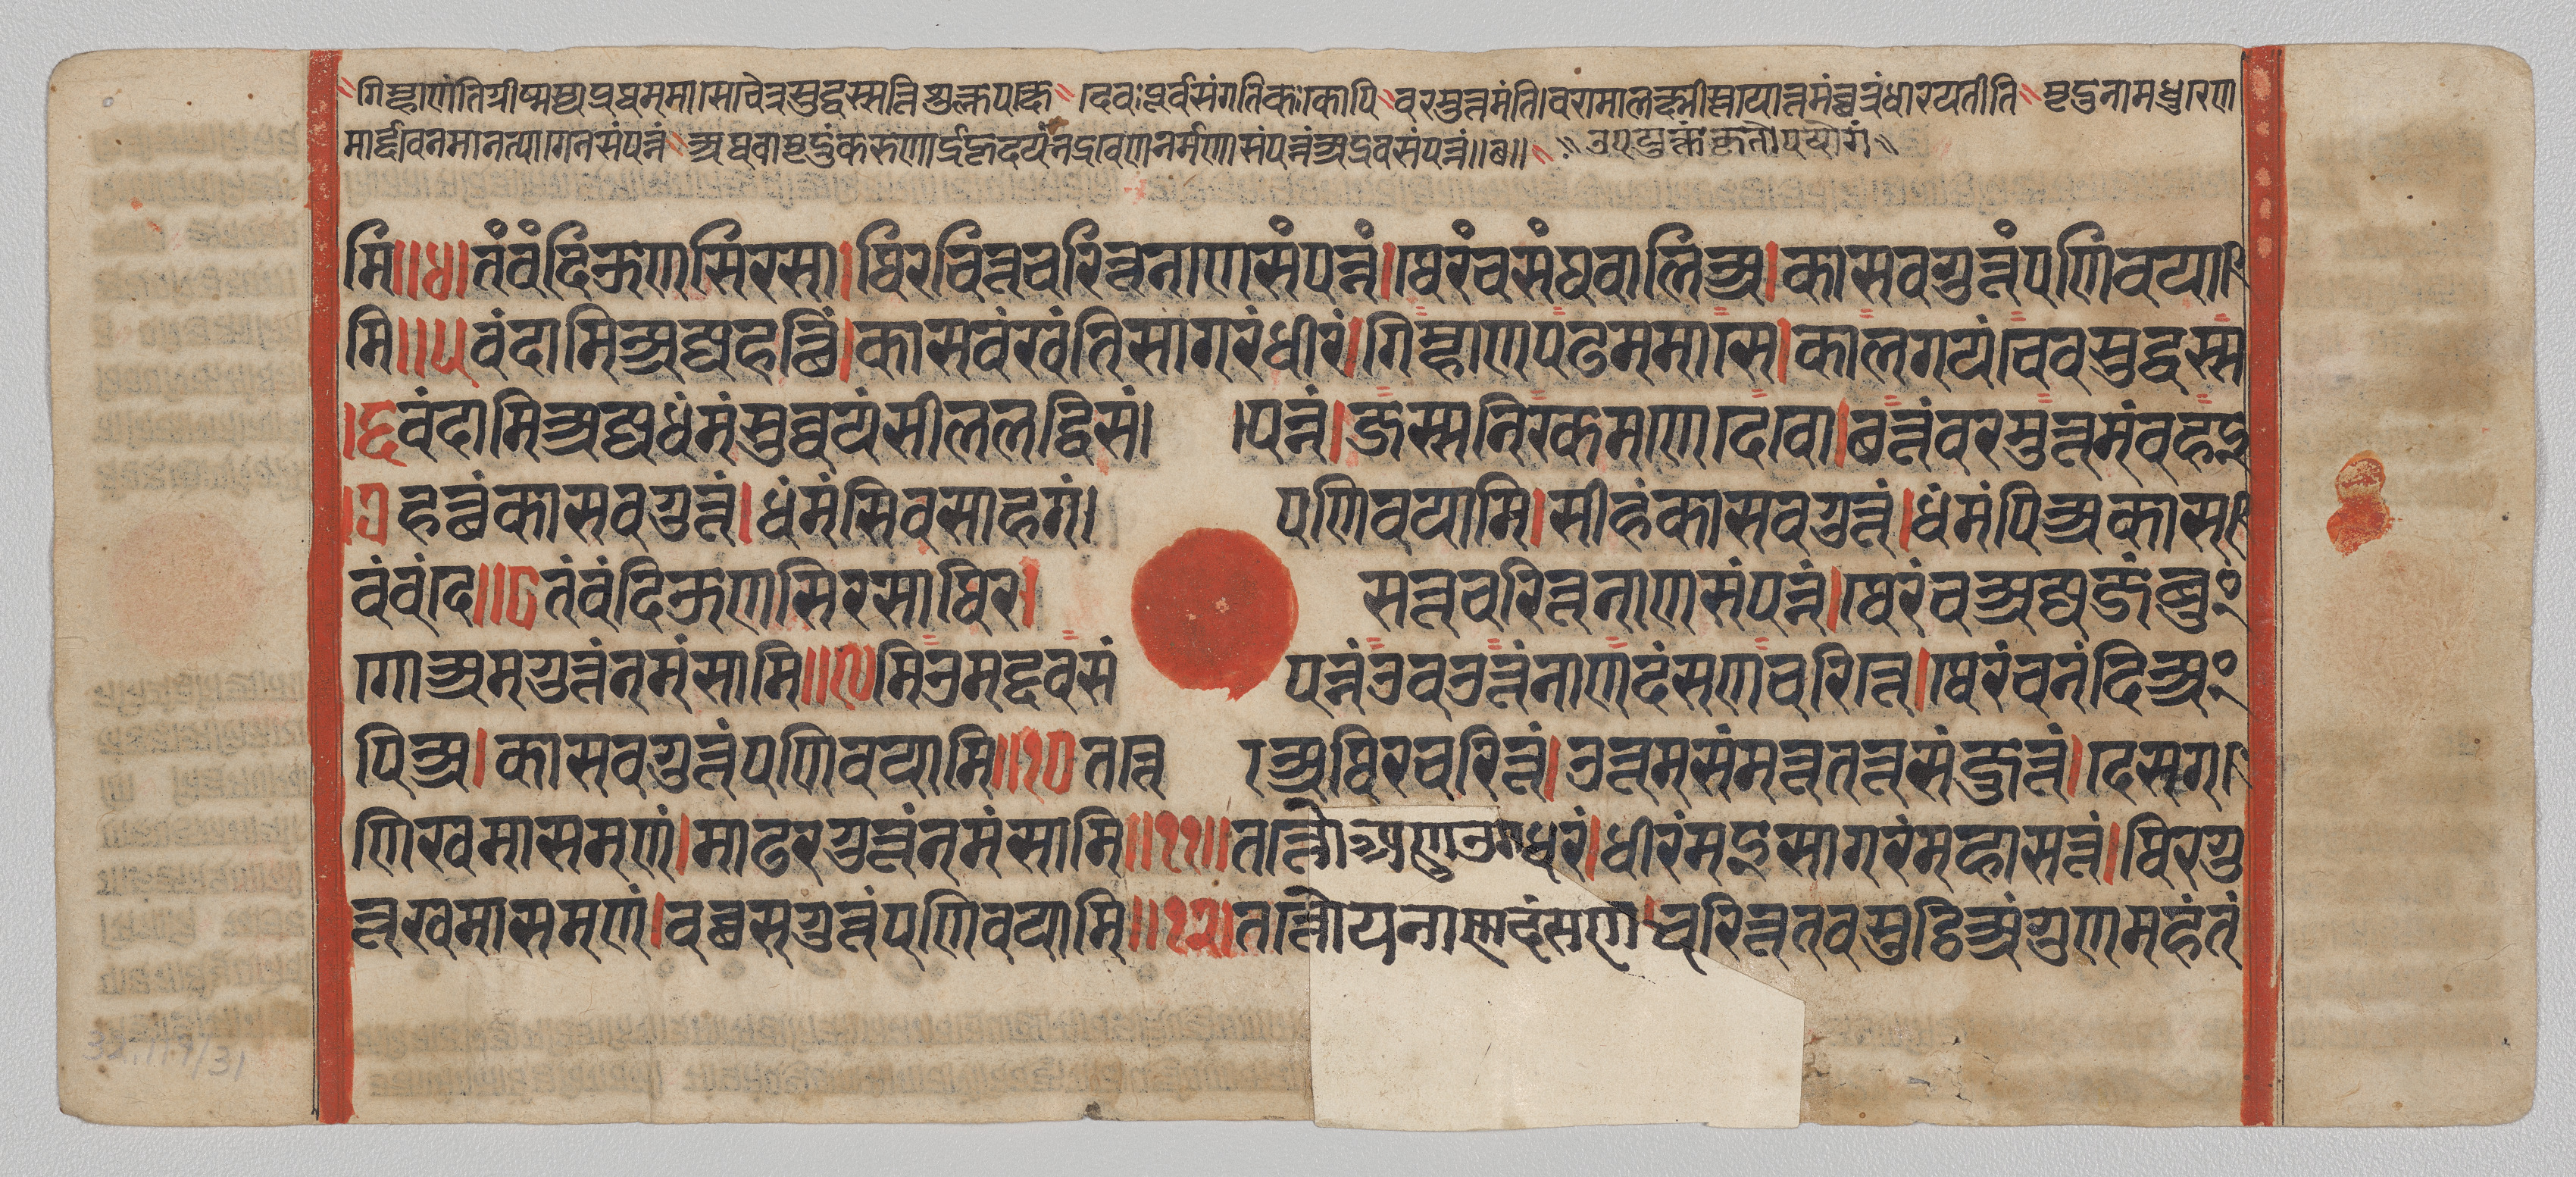 गिम्हाणंतिग्रीष्मस्यप्रथममासेचैत्रेसुद्धस्सत्तिशुक्लपक्षे देवःपूर्वसंगतिकःकोपि वरमुत्तमंति।वरामालक्ष्मीस्तयाउत्तमंछत्रंधारयतीति मृदुनामधुरेण
मार्द्दवेनमानत्यागेनसंपन्नं अथवामृदुकंकरुणार्द्रहृदयंनद्रवेणनर्मणासंपन्नंअद्रवसंपन्नं॥७॥ उपयुक्तंकृतोपयोगं
मि॥४।तंवंदिऊणसिरसा।थिरचित्तचरित्तनाणसंपन्नं।थेरंचसंघवालिअ।कासवगुत्तंपणिवया
मि॥५वंदामिअज्जहत्थिं।कासवंखंतिसागरंधीरं।गिम्हाणपढममासे।कालगयंचेवसुद्धस्स
।६वंदामिअज्जधंमंसुव्वयंसीललद्धिसंपन्नं।जस्सनिरकमणेदेवो।छत्तंवरमुत्तमंवहइ
।७हत्थंकासवगुत्तं।धंमंसिवसाहगंपणिवयामि।सीहंकासवगुत्तं।धंमंपिअकास
वंवंदे॥८तंवंदिऊणसिरसाथिर।सत्तचरित्तनाणसंपन्नं।थेरंचअज्जजंबुं
गोअमगुत्तंनमंसामि॥९मिउमद्दवसंपन्नंउवउत्तंनाणदंसणचरित्ते।थेरंचनंदिअं
पिअ।कासवगुत्तंपणिवयामि॥१०तत्तोअथिरचरित्तं।उत्तमसंमत्तसत्तसंजुत्तं।देसिग
णिखमासमणं।माढरगुत्तंनमंसामि॥११॥तत्तोअणुओगधरं।धीरंमइसागरंमहासत्तं।थिरगु
त्तखमासमणं।वच्छसगुत्तंपणिवयामि॥१२।तत्तोयनाणदंसण।चरित्ततवसुट्ठिअंगुणमहंतं
32.11.9/31